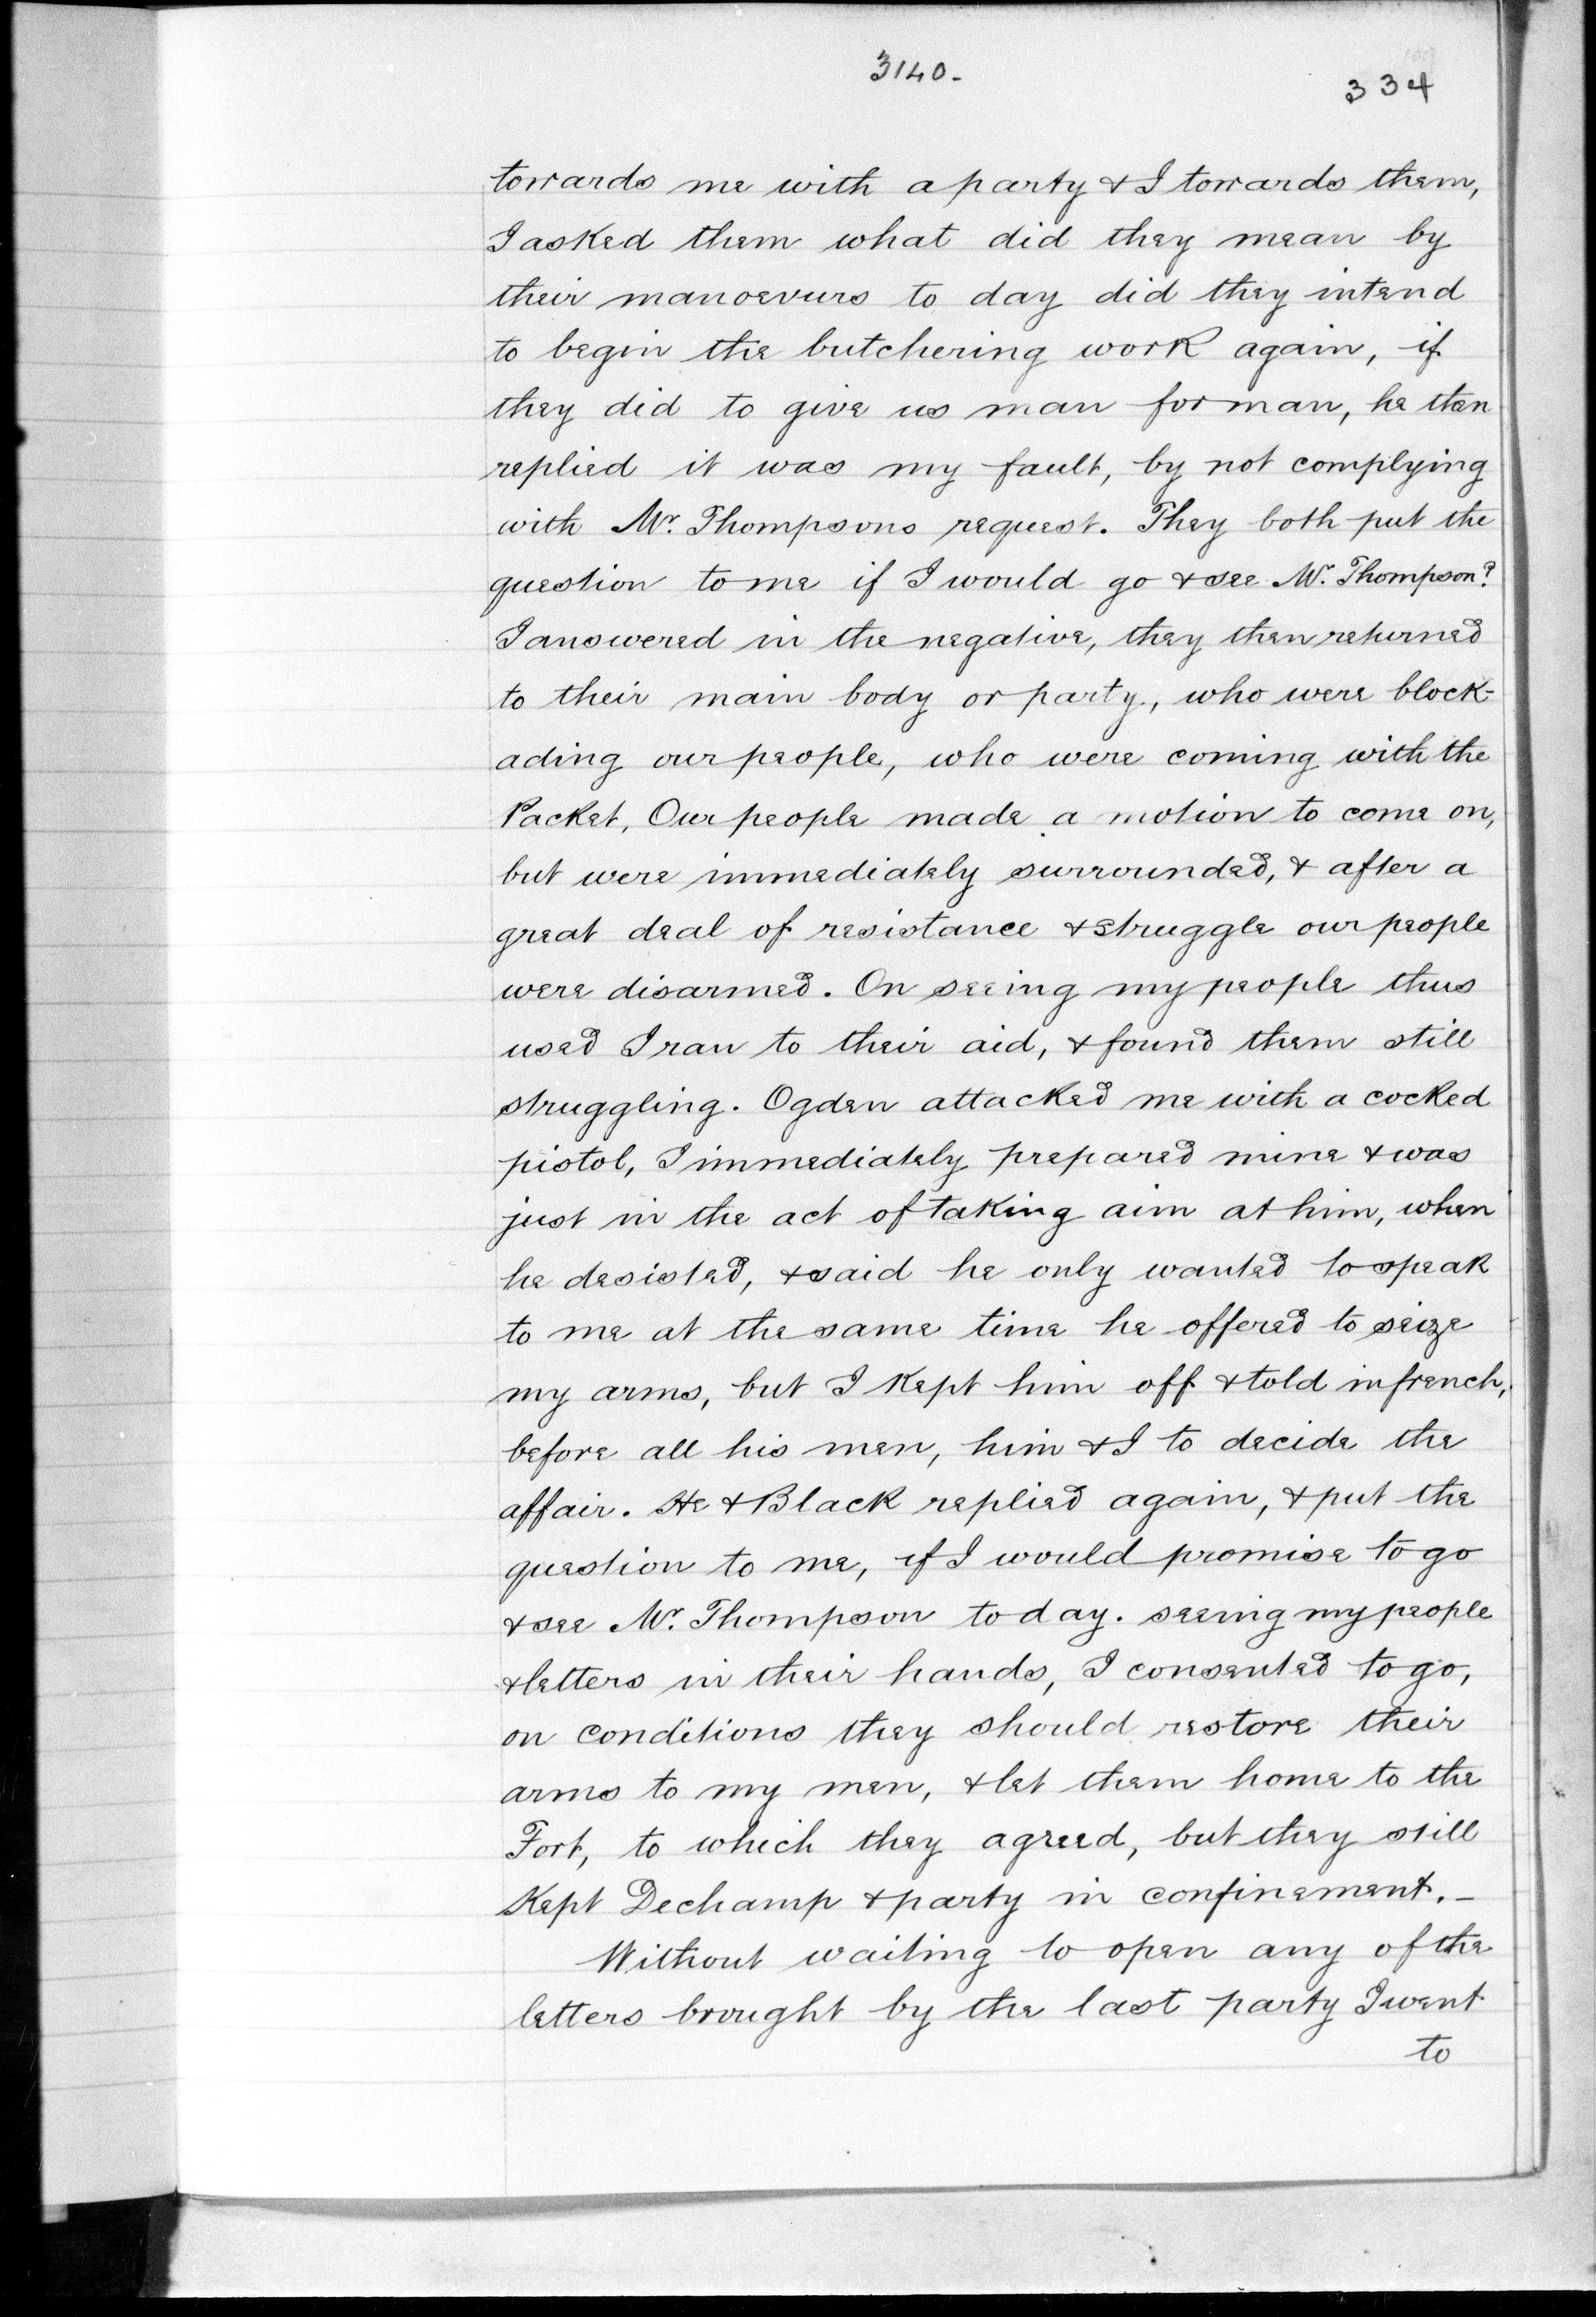 3140.
334
towards me with a party & I towards them,
I asked them what did they mean by
their manoevurs to day did they intend
to begin the butchering work again, if
they did to give us man for man, he then
replied it was my fault, by not complying
with Mr. Thompsons request. They both put the
question to me if I would go & see Mr. Thompson?
I answered in the negative, they then returned
to their main body or party, who were block-
ading our people, who were coming with the
Packet, Our people made a motion to come on,
but were immediately surrounded, & after a
great deal of resistance & struggle our people
were disarmed. On seeing my people thus
used I ran to their aid, & found them still
struggling. Ogden attacked me with a cocked
pistol, I immediately prepared mine & was
just in the act of taking aim at him, when
he desisted, & said he only wanted to speak
to me at the same time he offered to seize
my arms, but I kept him off & told in french,
before all his men, him & I to decide the
affair. He & Black replied again, & put the
question to me, if I would promise to go
& see Mr. Thompson to day. seeing my people
& letters in their hands, I consented to go,
on conditions they should restore their
arms to my men, & let them home to the
Fort, to which they agreed, but they still
kept Dechamp & party in confinement. –
Without waiting to open any of the
letters brought by the last party I went
to